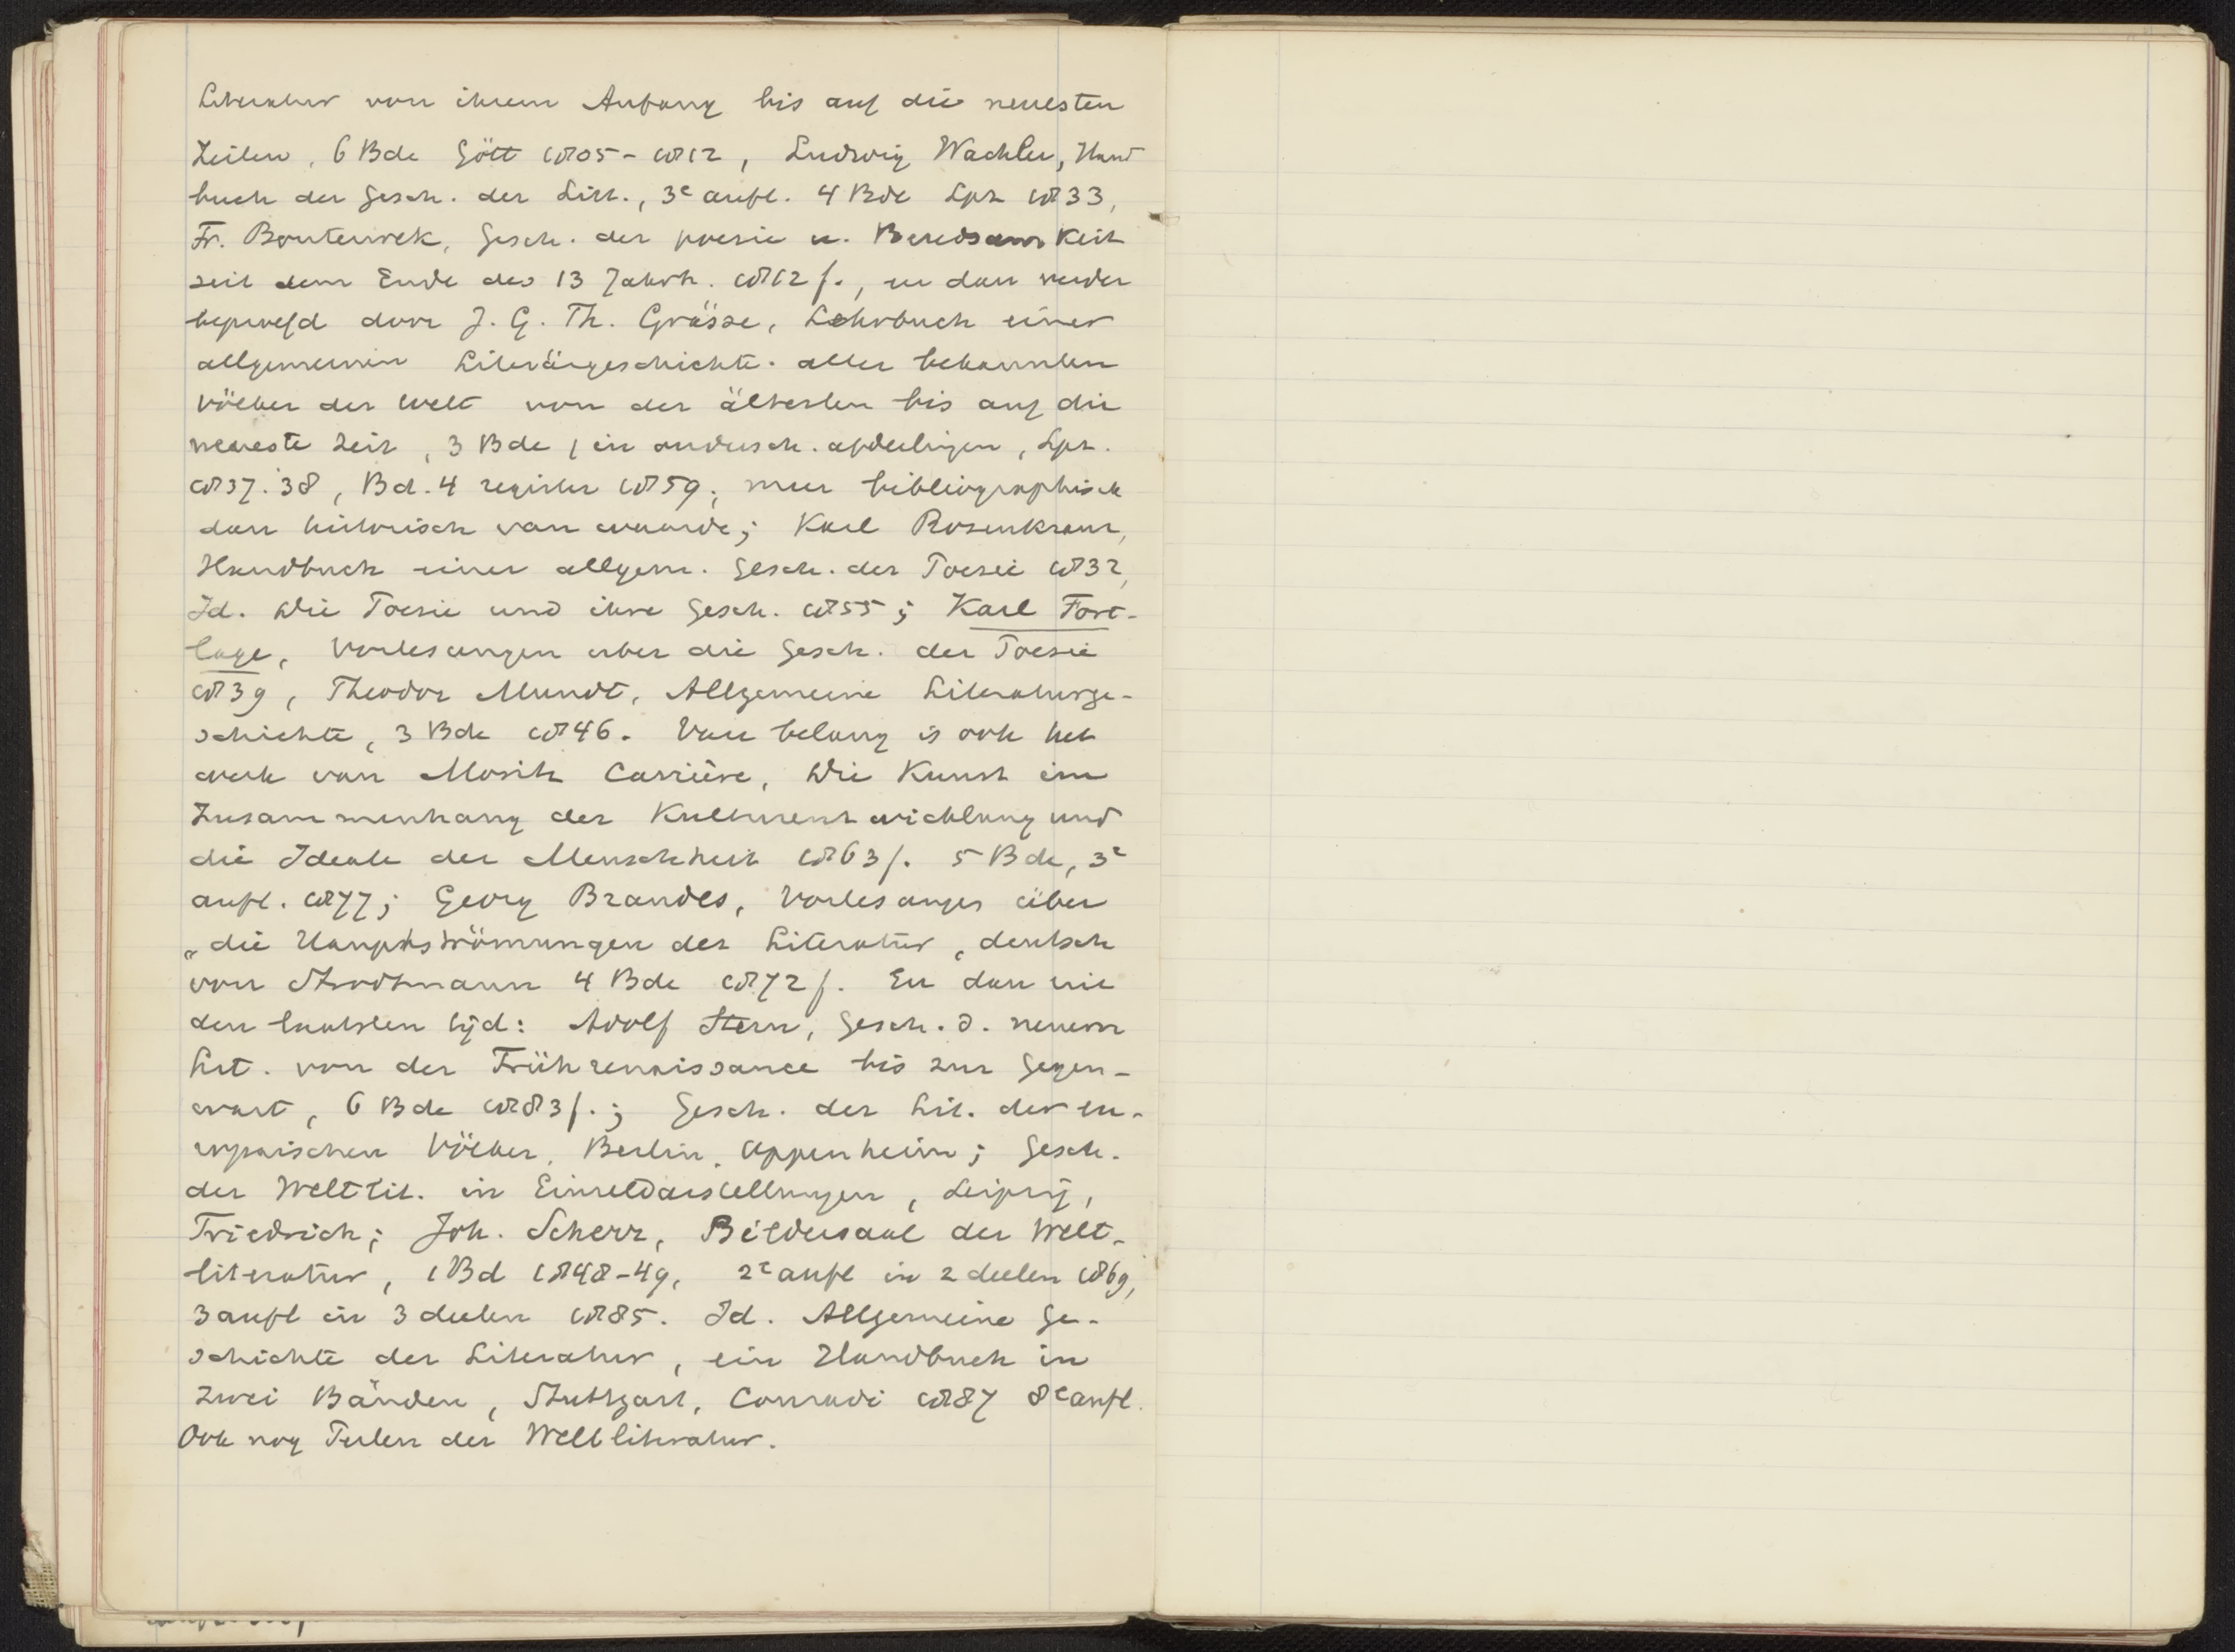 Literatur von ihrem Anfang bis auf die neuesten
Zeiten, 6 Bde Gött 1805-1812, Ludwig Wachler, Hand
buch der Gesch. der Litt., 3e aufl. 4 Bde Lpz 1833,
Fr. Bouterwek, Gesch. der poesie u. Beredsamkeit
seit dem Ende des 13 Jahrh. 1812 f., en dan verder
beproefd door J. G. Th. Grässe, Lehrbuch einer
allgemeinen Literärgeschichte. aller bekannten
Völker der Welt von der ältesten bis auf die
neueste Zeit, 3 Bde, in ondersch. afdeelingen, Lpz.
1837.'38, Bd. 4 register 1859; meer bibliographisch
dan historisch van waarde; Karl Rosenkranz,
Handbuch einer allgem. Gesch. der Poesie 1832,
Id. Die Poesie und ihre Gesch. 1855; Karl Fort-
lage, Vorlesungen uber die Gesch. der Poesie
1839, Theodor Mundt, Allgemeine Literaturge-
schichte, 3 Bde 1846. Van belang is ook het
werk van Moritz Carrière, Die Kunst im
Zusammenhang der Kulturentwicklung und
die Ideale der Menschheit 1863 f. 5 Bde, 3e
aufl. 1877; Georg Brandes, Vorlesungen über
„die Hauptströmungen der Literatur, deutsch
von Strodtmann 4 Bde 1872 f. En dan uit
den laatsten tijd: Adolf Stern, Gesch. d. neuern
Lit. von der Frührenaissance bis zur Gegen-
wart, 6 Bde 1883 f.; Gesch. der Lit. der eu-
ropaischen Völker, Berlin. Oppenheim; Gesch.
der Weltlit. in Einzeldarstellungen, Leipzig,
Friedrich; Joh. Scherr, Bildersaal der Welt-
literatur, 1 Bd 1848-49, 2e aufl in 2 deelen 1869,
3 aufl in 3 deelen 1885. Id. Allgemeine Ge-
schichte der Literatur, ein Handbuch in
zwei Bänden, Stuttgart, Conradi 1887 8e aufl.
Ook nog Teilen der Weltliteratur.